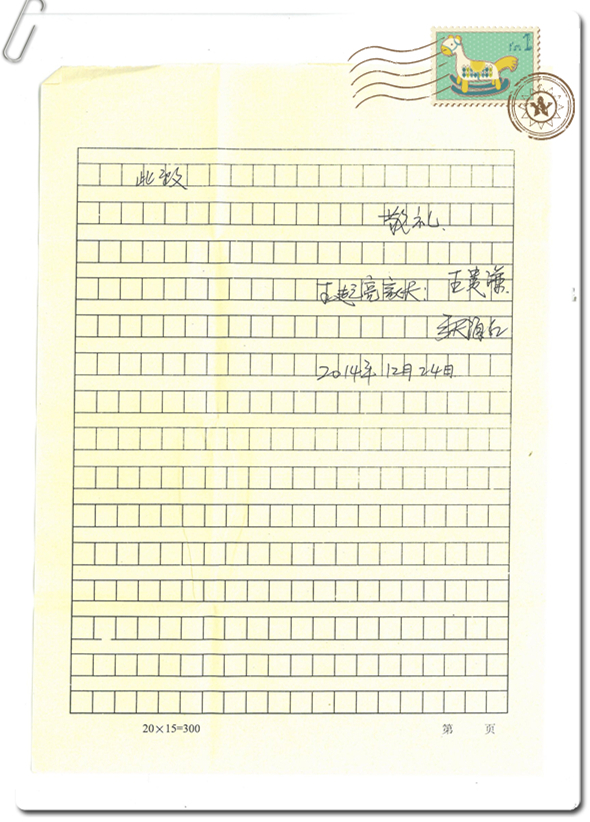 此致
敬礼.
王超亮家长: 王贵
2014年12月24日
20×15=300
第 页